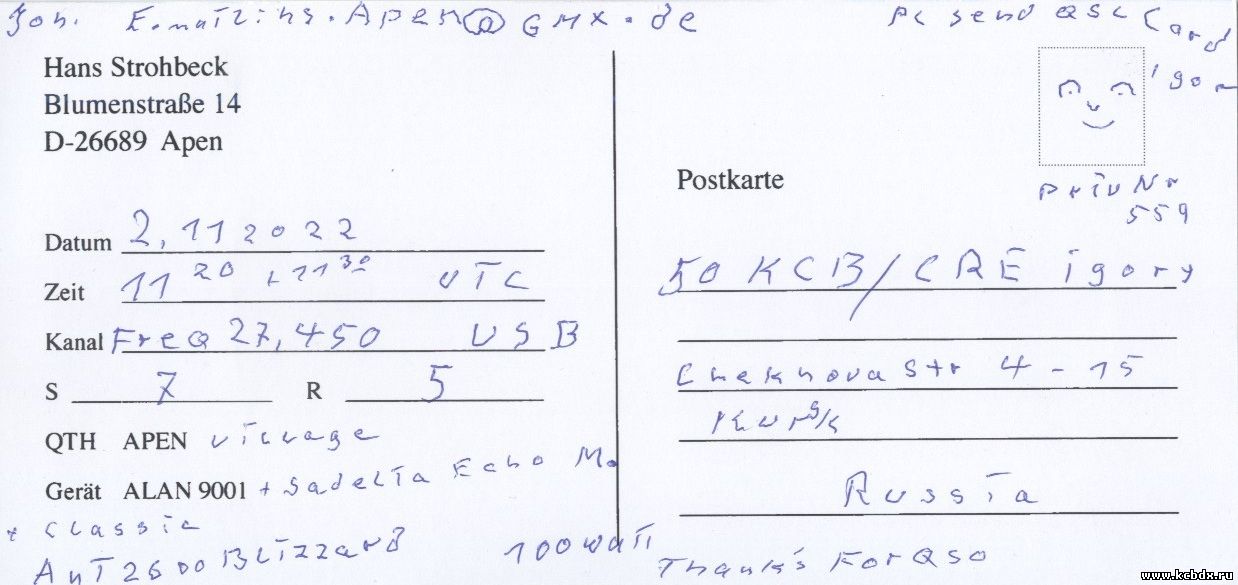 Joh. E.matting.Apen@GMX.de
Pl send QSL Card
Igor
Hans Strohbeck
Blumenstraße 14
D-26689 Apen
Datum 2.11 2022
Zeit 11 20 + 11 30 UTC
Kanal Freq 27,450 USB
S 7 R 5
QTH APEN village
Gerät ALAN 9001 + Sadelta Echo M.
+ Classic
Ant 2600 Blizzard 100 watt
Postkarte
Priv Nr
559
50 KCB/CRE igory
Chekhova Str 4-15
Kursk
Russia
Thank's For QSO
www.kcbdx.ru